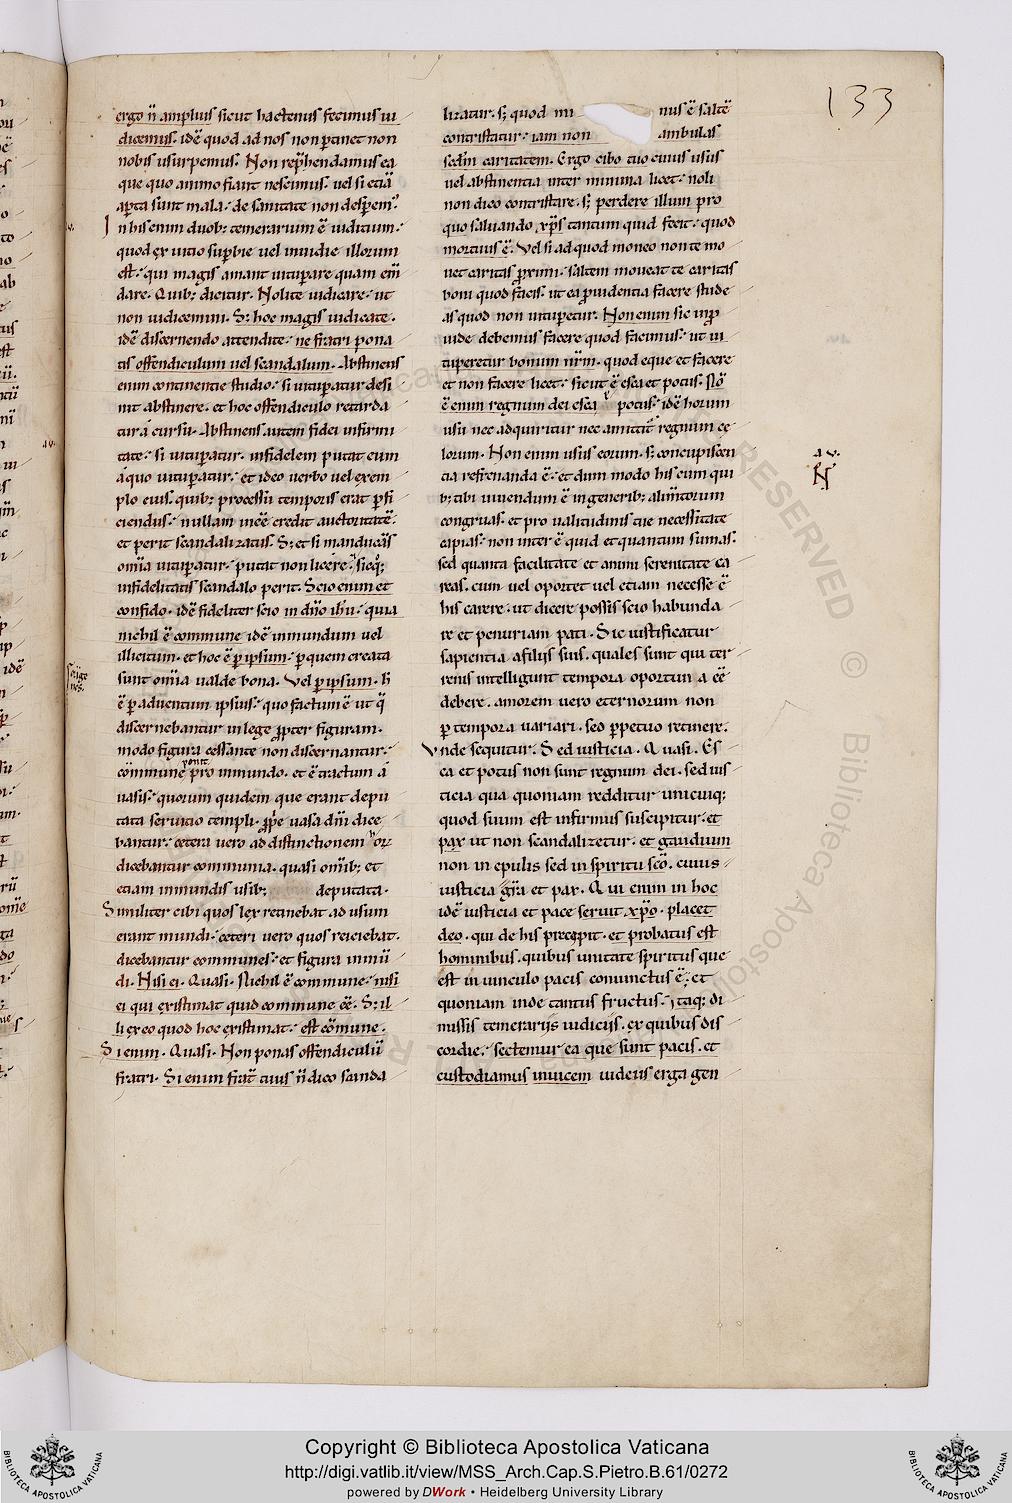 133
ergo ñ amplius sicut hactenus fecimus iu
dicemus. idē quod ad nos non ptinet non
nobis usurpemus. Non rephendamus ea
que quo animo fiant nescimus. uel si etiā
apta sunt mala. de sanitate non despem.
In his enim duob; temerarium ē iudicium.
quod ex uitio supbie uel inuidie illorum
est. qui magis amant uitupare quam em̄
dare. Quib; dicitur. Nolite iudicare. ut
non iudicemini. S; hoc magis iudicate.
idē discernendo attendite. ne fratri pona
tis offendiculum uel scandalum. Abstinens
enim continentie studio. si uitupatur desi
nit abstinere. et hoc offendiculo retarda
tur a cursu. Abstinens autem fidei infirmi
tate. si uitupatur. infidelem putat eum
a quo uitupatur. et ideo uerbo uel exem
plo eius quib; processu temporis erat pfi
ciendus. nullam inēē credit auctoritatē.
et perit scandalizatus. S; et si manducās
om̄ia uitupatur. putat non licere. sicq;
infidelitatis scandalo perit. Scio enim et
confido. idē fideliter scio in dn̄o ih̄u. quia
nichil ē commune idē inmundum uel
illicitum. et hoc ē p ipsum. p quem creata
sunt om̄ia ualde bona. Vel p ipsum. h̄
ē p aduentum ipsius. quo factum ē ut q̄
discernebantur in lege ppter figuram.
modo figura cessante non discernantur.
cōmune ponit pro inmundo. et ē tractum a
uasis. quorum quidem que erant depu
tata seruitio templi. ppe uasa dn̄i dice
bantur. cetera uero ad distinctionem hor
dicebantur communia. quasi omīb; et
etiam inmundis usib; deputata.
Similiter cibi quos lex retinebat ad usum
erant mundi. ceteri uero quos reiciebat.
dicebantur communes. et figura inmū
di. Nisi ei. Quasi. Nichil ē commune. nisi
ei qui existimat quid commune ēē. S; il
li ex eo quod hoc existimat. est cōmune.
Si enim. Quasi. Non ponas offendiculū
fratri. Si enim frat̄ tuus ñ dico scanda
lizatur. s; quod mi nus ē saltē
contristatur. iam non ambulas
sedm̄ caritatem. Ergo cibo tuo cuius usus
uel abstinentia inter minima licet. noli
non dico contristare. s; perdere illum pro
quo saluando xp̄s tantum quid fecit. quod
mortuus ē. Vel si ad quod moneo non te mo
uet caritas proximi. saltem moueat te caritas
boni quod facis. ut ea prouidentia facere stude
as quod non uituperetur. Non enim sic inpro
uide debemus facere quod facimus. ut ui
tuperetur bonum nr̄m. quod eque et facere
et non facere licet. sicut ē esca et potus. Nō
ē enim regnum dei esca et potus. idē horum
usu nec adquiritur nec amittit̄ regnum ce
lorum. Non enim usus eorum. s; concupiscen
tia refrenanda ē. et dum modo his cum qui
b; tibi uiuendum ē in generib; alim̄torum
congruas. et pro ualitudinis tue necessitate
capias. non inter ē quid et quantum sumas.
sed quanta facilitate et animi serenitate ca
reas. cum uel oportet uel etiam necesse ē
his carere. ut dicere possis scio habunda
re et penuriam pati. Sic iustificatur
sapientia a filiis suis. quales sunt qui ter
renis intelligunt tempora oportuna ēē
debere. amorem uero eternorum non
p tempora uariari. sed ppetuo retinere.
Vnde sequitur. Sed iusticia. Quasi. Es
ca et potus non sunt regnum dei. sed ius
ticia qua quoniam redditur unicuiq;
quod suum est infirmus suscipitur. et
pax ut non scandalizetur. et gaudium
non in epulis sed in spiritu scō. cuius
iusticia gr̄a et pax. Qui enim in hoc
idē iusticia et pace seruit xp̄o. placet
deo. qui de his precepit. et probatus est
hominibus. quibus unitate spiritus que
est in uinculo pacis coniunctus ē. et
quoniam inde tantus fructus. Itaq; di
missis temerariis iudiciis. ex quibus dis
cordie. sectemur ea que sunt pacis. et
custodiamus inuicem uidelis erga gen
Copyright © Biblioteca Apostolica Vaticana
http://digi.vatlib.it/view/MSS_Arch.Cap.S.Pietro.B.61/0272
powered by DWork • Heidelberg University Library